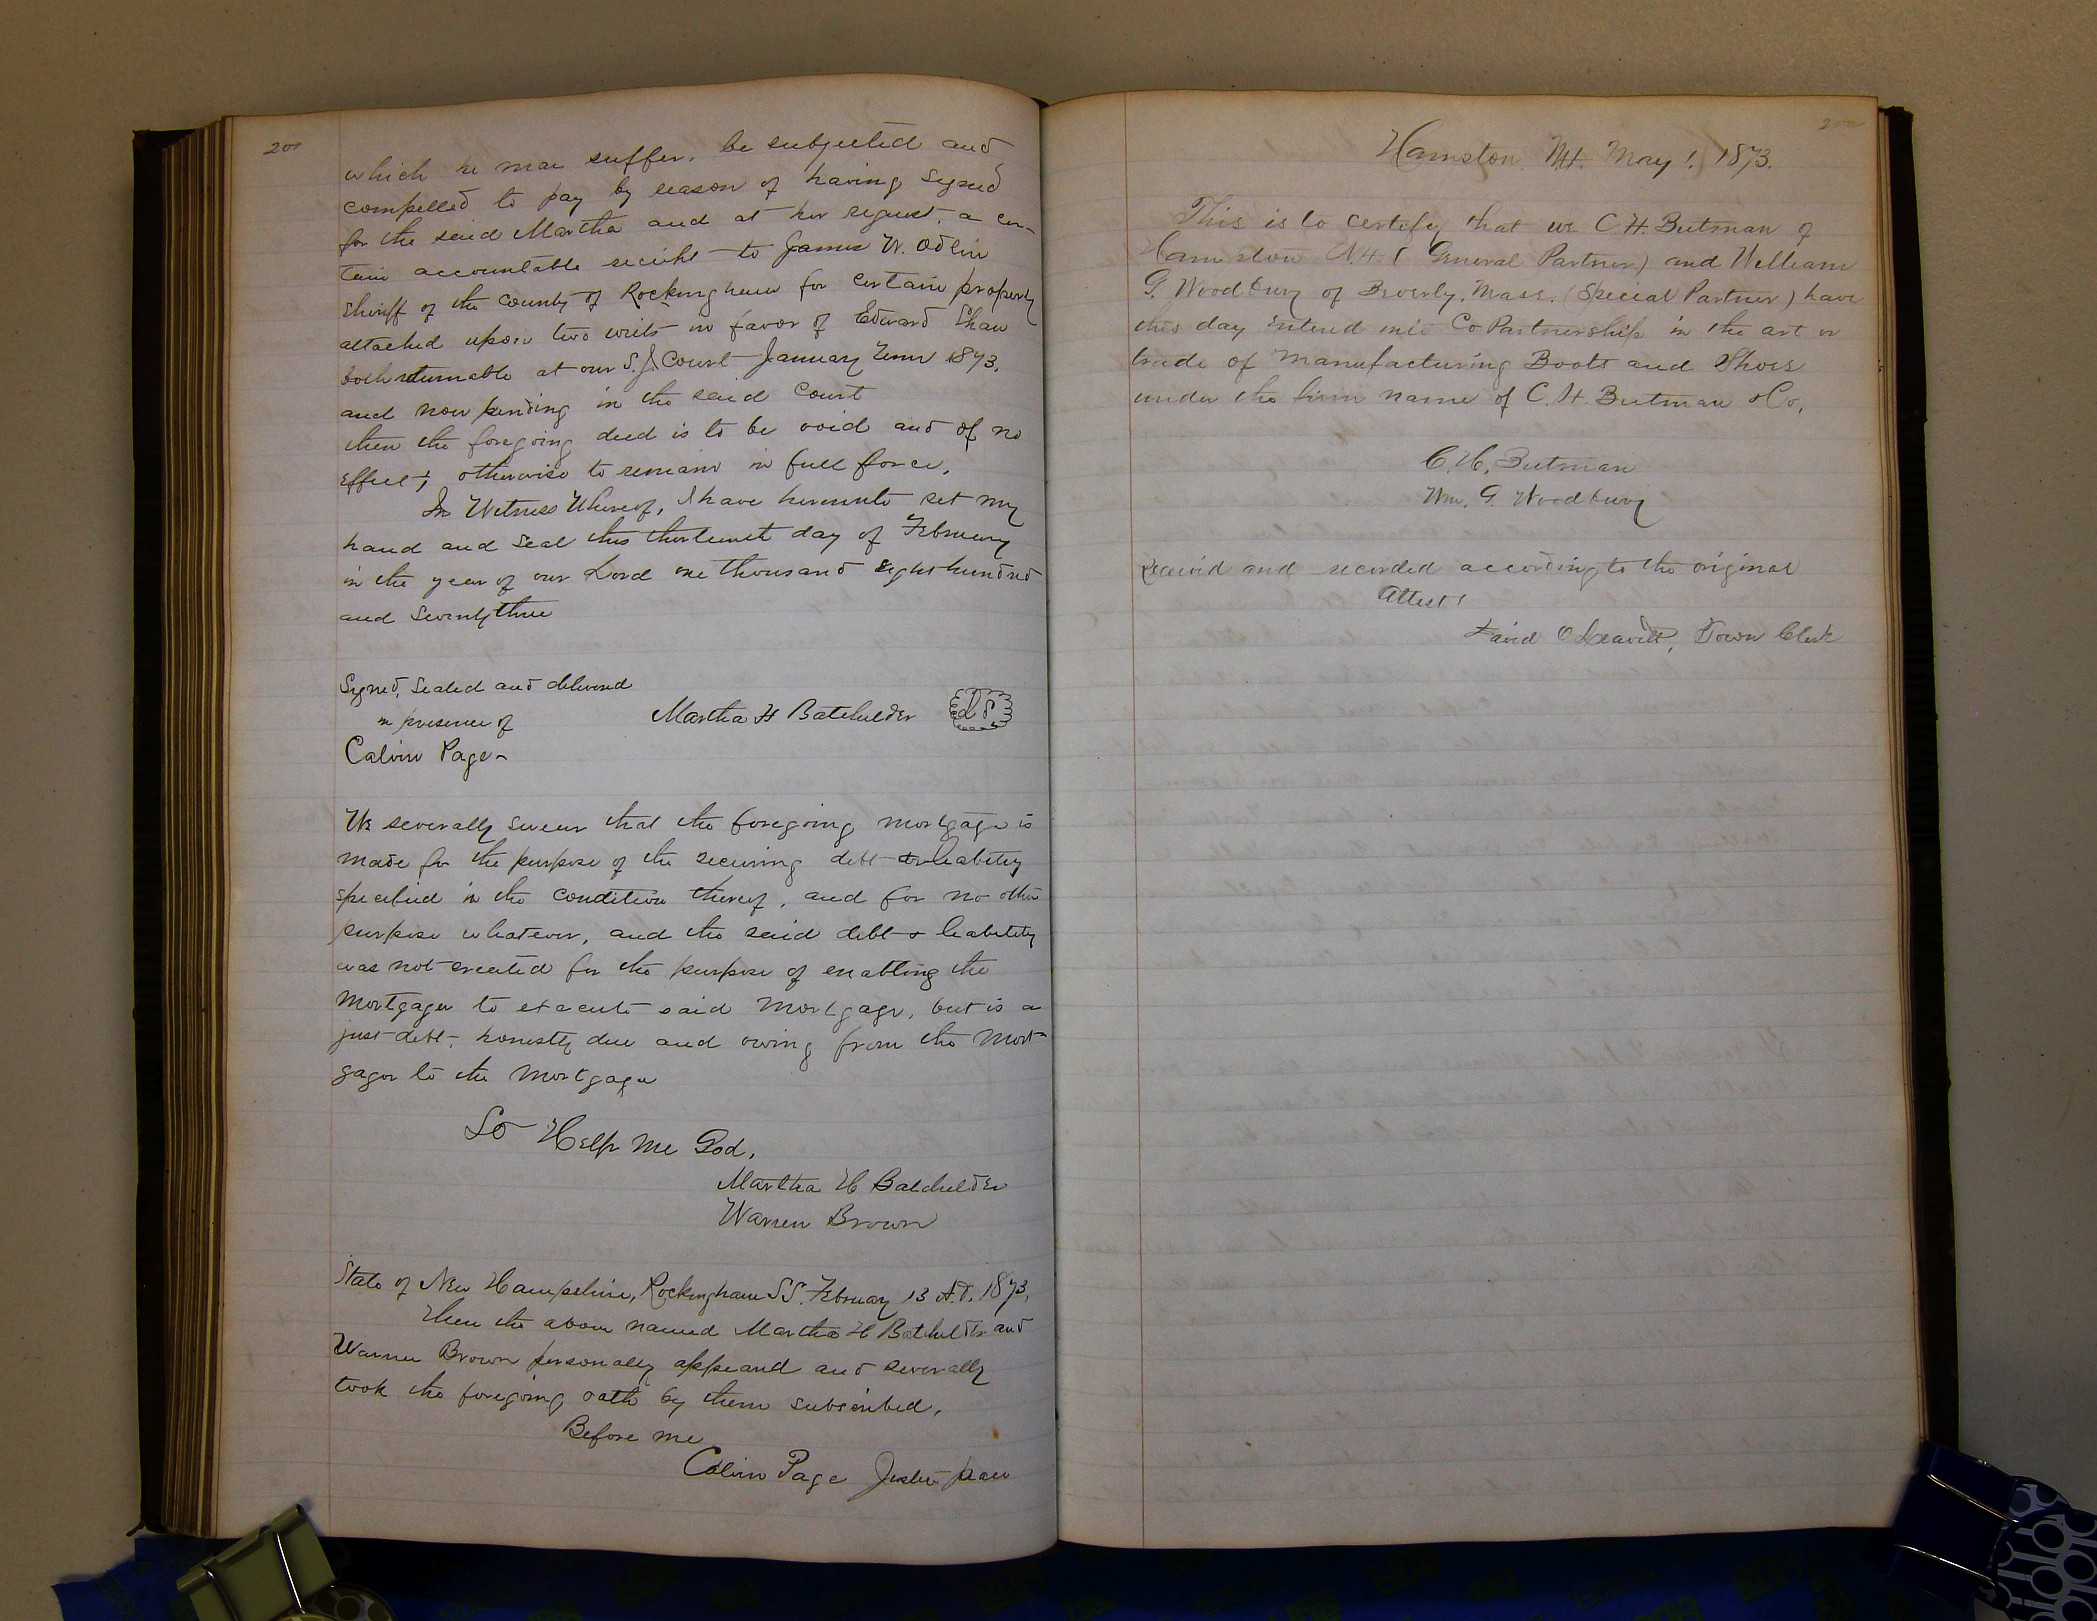 201
which he may suffer, be subjected and
compelled to pay by reason of having signed
for the said Martha and at her request, a cer-
tain accountable reciept to James W. Odlin
Sheriff of the County of Rockingham for certain property
attached upon two writs in favor of Edward Shaw
both returnable at our S. J. Court January Term 1873,
and now pending in the said Court
then the foregoing deed is to be void and of no
effect; otherwise to remain in full force,
In Witness Whereof, I have hereunto set my
hand and seal this thirteenth day of February
in the year of our Lord one thousand eight hundred
and seventy three
Signed, Sealed and delivered
in presence of
Martha H Batchelder LS
Calvin Page
We severally swear that the foregoing mortgage is
made for the purpose of the securing debt & leabetity
specified in the condition thereof, and for no other
purpose whatever, and the said debt & leabitity
was not created for the purpose of enabling the
Mortgager to execute said Mortgage, but is a
just debt, honestly due and owing from the Mort-
gagor to the Mortgagee
So Help Me God,
Martha H Batchelder
Warren Brown
State of New Hampshire, Rockingham SS. February 13 A.D. 1873,
Then the above named Martha H Batchelder and
Warren Brown personally appeared and severally
took the foregoing oath by them subscribed,
Before me
Calvin Page Justice peace
202
Hampton NH May 1, 1873.
This is to certify that we C. H. Butman of
Hampton N.H. (General Partner) and William
G. Woodbury of Beverly, Mass. (Special Partner) have
this day entered into Co Partnership in the art or
trade of manufacturing Boots and Shoes
under the firm name of C. H. Butman & Co,
C. H. Butman
Wm. G. Woodbury
Received and recorded according to the original
Attest:
David O Leavitt, Town Clerk